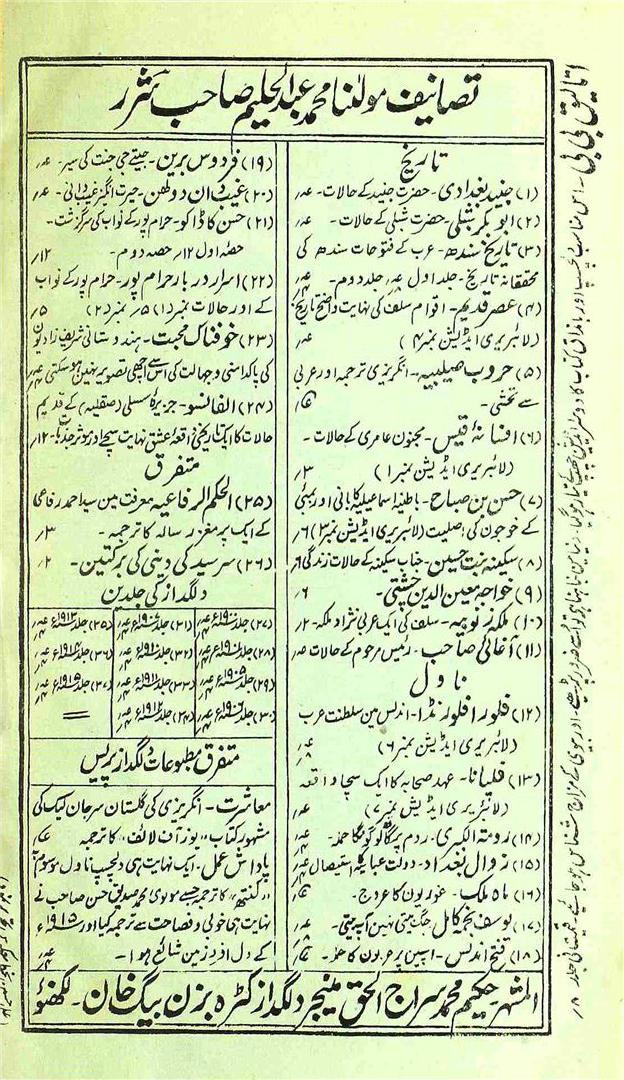 تصانیف مولٰنا محمد عبدالحلیم صاحب شرر
تاریخ
(۱) جنید بغدادی۔ حضرت جنید کے حالات۔
(۲) ابوبکر شبلی۔ حضرت شبلی کے حالات۔
(۳) تاریخ سندھ۔ عرب کے فتوحات سندھ کی
محققانہ تاریخ۔ جلد اول جلد دوم۔
(۴) عصر قدیم۔ اقوام سلف کی نہایت واضح تاریخ
(لائبریری ایڈیشن نمبر ۴)
(۵) حروب صلیبیہ۔ انگریزی ترجمہ اور عربی
سے تحشی۔
(۶) افسانۂ قیس۔ مجنون عامری کے حالات۔
(لائبریری ایڈیشن نمبر ۱) ۳؍
(۷) حسن بن صباح۔ باطنیہ اسماعیلیہ کا بانی اور بمبئی
کے خوجون کی اصلیت (لائبریری ایڈیشن نمبر ۳) ۶؍
(۸) سکینہ بنت حسین۔ جناب سکینہ کے حالات زندگی ۶؍
(۹) خواجہ معین الدین چشتی۔ ۶؍
(۱۰) ملکہ زنوبیہ۔ سلف کی ایک عربی نژاد ملکہ۔ ۲؍
(۱۱) آغائی صاحب۔ رئیس مرحوم کے حالات
ناول
(۱۲) فلورا فلورنڈا۔ اندلس مین سلطنت عرب
(لائبریری ایڈیشن نمبر ۶)
(۱۳) فلپانا۔ عہد صحابہ کا ایک سچا واقعہ
(لائبریری ایڈیشن نمبر ۷)
(۱۴) رومۃ الکبریٰ۔ روم پر گاتھ لوگونکا حملہ۔
(۱۵) زوال بغداد۔ دولت عباسیہ کا استیصال
(۱۶) ماہ ملک۔ غوریون کا عروج۔
(۱۷) یوسف نجمہ کامل جگ بیتی نہین آپ بیتی۔
(۱۸) فتح اندلس۔ اسپین پر عربون کا حملہ۔
(۱۹) فردوس برین۔ جیتے جی جنت کی سیر۔
(۲۰) غیب دان دولھن۔ حیرت انگیز غیب دانی۔
(۲۱) حسن کا ڈاکو۔ حرام پور کے نواب کی سرگزشت۔
حصہ اول ۱۲؍ حصہ دوم۔ ۱۲؍
(۲۲) اسرار دربار حرام پور۔ حرام پور کے نواب
کے اور حالات نمبر (۱) ۵؍ نمبر (۲) ۵؍
(۲۳) خوفناک محبت۔ ہندوستانی شریف زادیون
کی پاکدامنی و جہالت کی اس سے اچھی تصویر نہین ہوسکتی
(۲۴) الفانسو۔ جزیرۂ سسلی (صقلیہ) کے قدیم
حالات کا ایک تاریخی واقعۂ عشق نہایت سچے اور موثر جذبات۔ ۱۲؍
متفرق
(۲۵) الحکم الرفاعیہ معرفت مین سید احمد رفاعی
کے ایک پرمغز رسالہ کا ترجمہ۔ ۳؍
(۲۶) سرسید کی دینی برکتین۔ ۲؍
دلگداز کی جلدین
(۲۷) جلد
(۲۸) جلد
(۲۹) جلد ۱۹۰۵ء
(۳۰) جلد ۱۹۰۶ء
(۳۱) جلد ۱۹۰۷ء
(۳۲) جلد ۱۹۱۰ء
(۳۳) جلد ۱۹۱۱ء
(۳۴) جلد ۱۹۱۲ء
(۳۵) جلد ۱۹۱۳ء
(۳۶) جلد ۱۹۱۴ء
(۳۷) جلد ۱۹۱۵ء
متفرق مطبوعات دلگداز پریس
معاشرت۔ انگریزی کی گلستان سرجان لبک کی
مشہور کتاب "یوز آف لائف" کا ترجمہ
پاداش عمل۔ ایک نہایت ہی دلچسپ ناول موسوم
کا ترجمہ جسے مولوی محمد صدیق حسن صاحب نے
نہایت ہی خوبی و فصاحت سے ترجمہ کیا اور ۱۹۱۵ء
کے دل افروز مین شائع ہوا۔
المشہر حکیم محمد سراج الحق منیجر دلگداز کٹرہ بزن بیگ خان۔ لکھنؤ
اتالیق بی بی۔